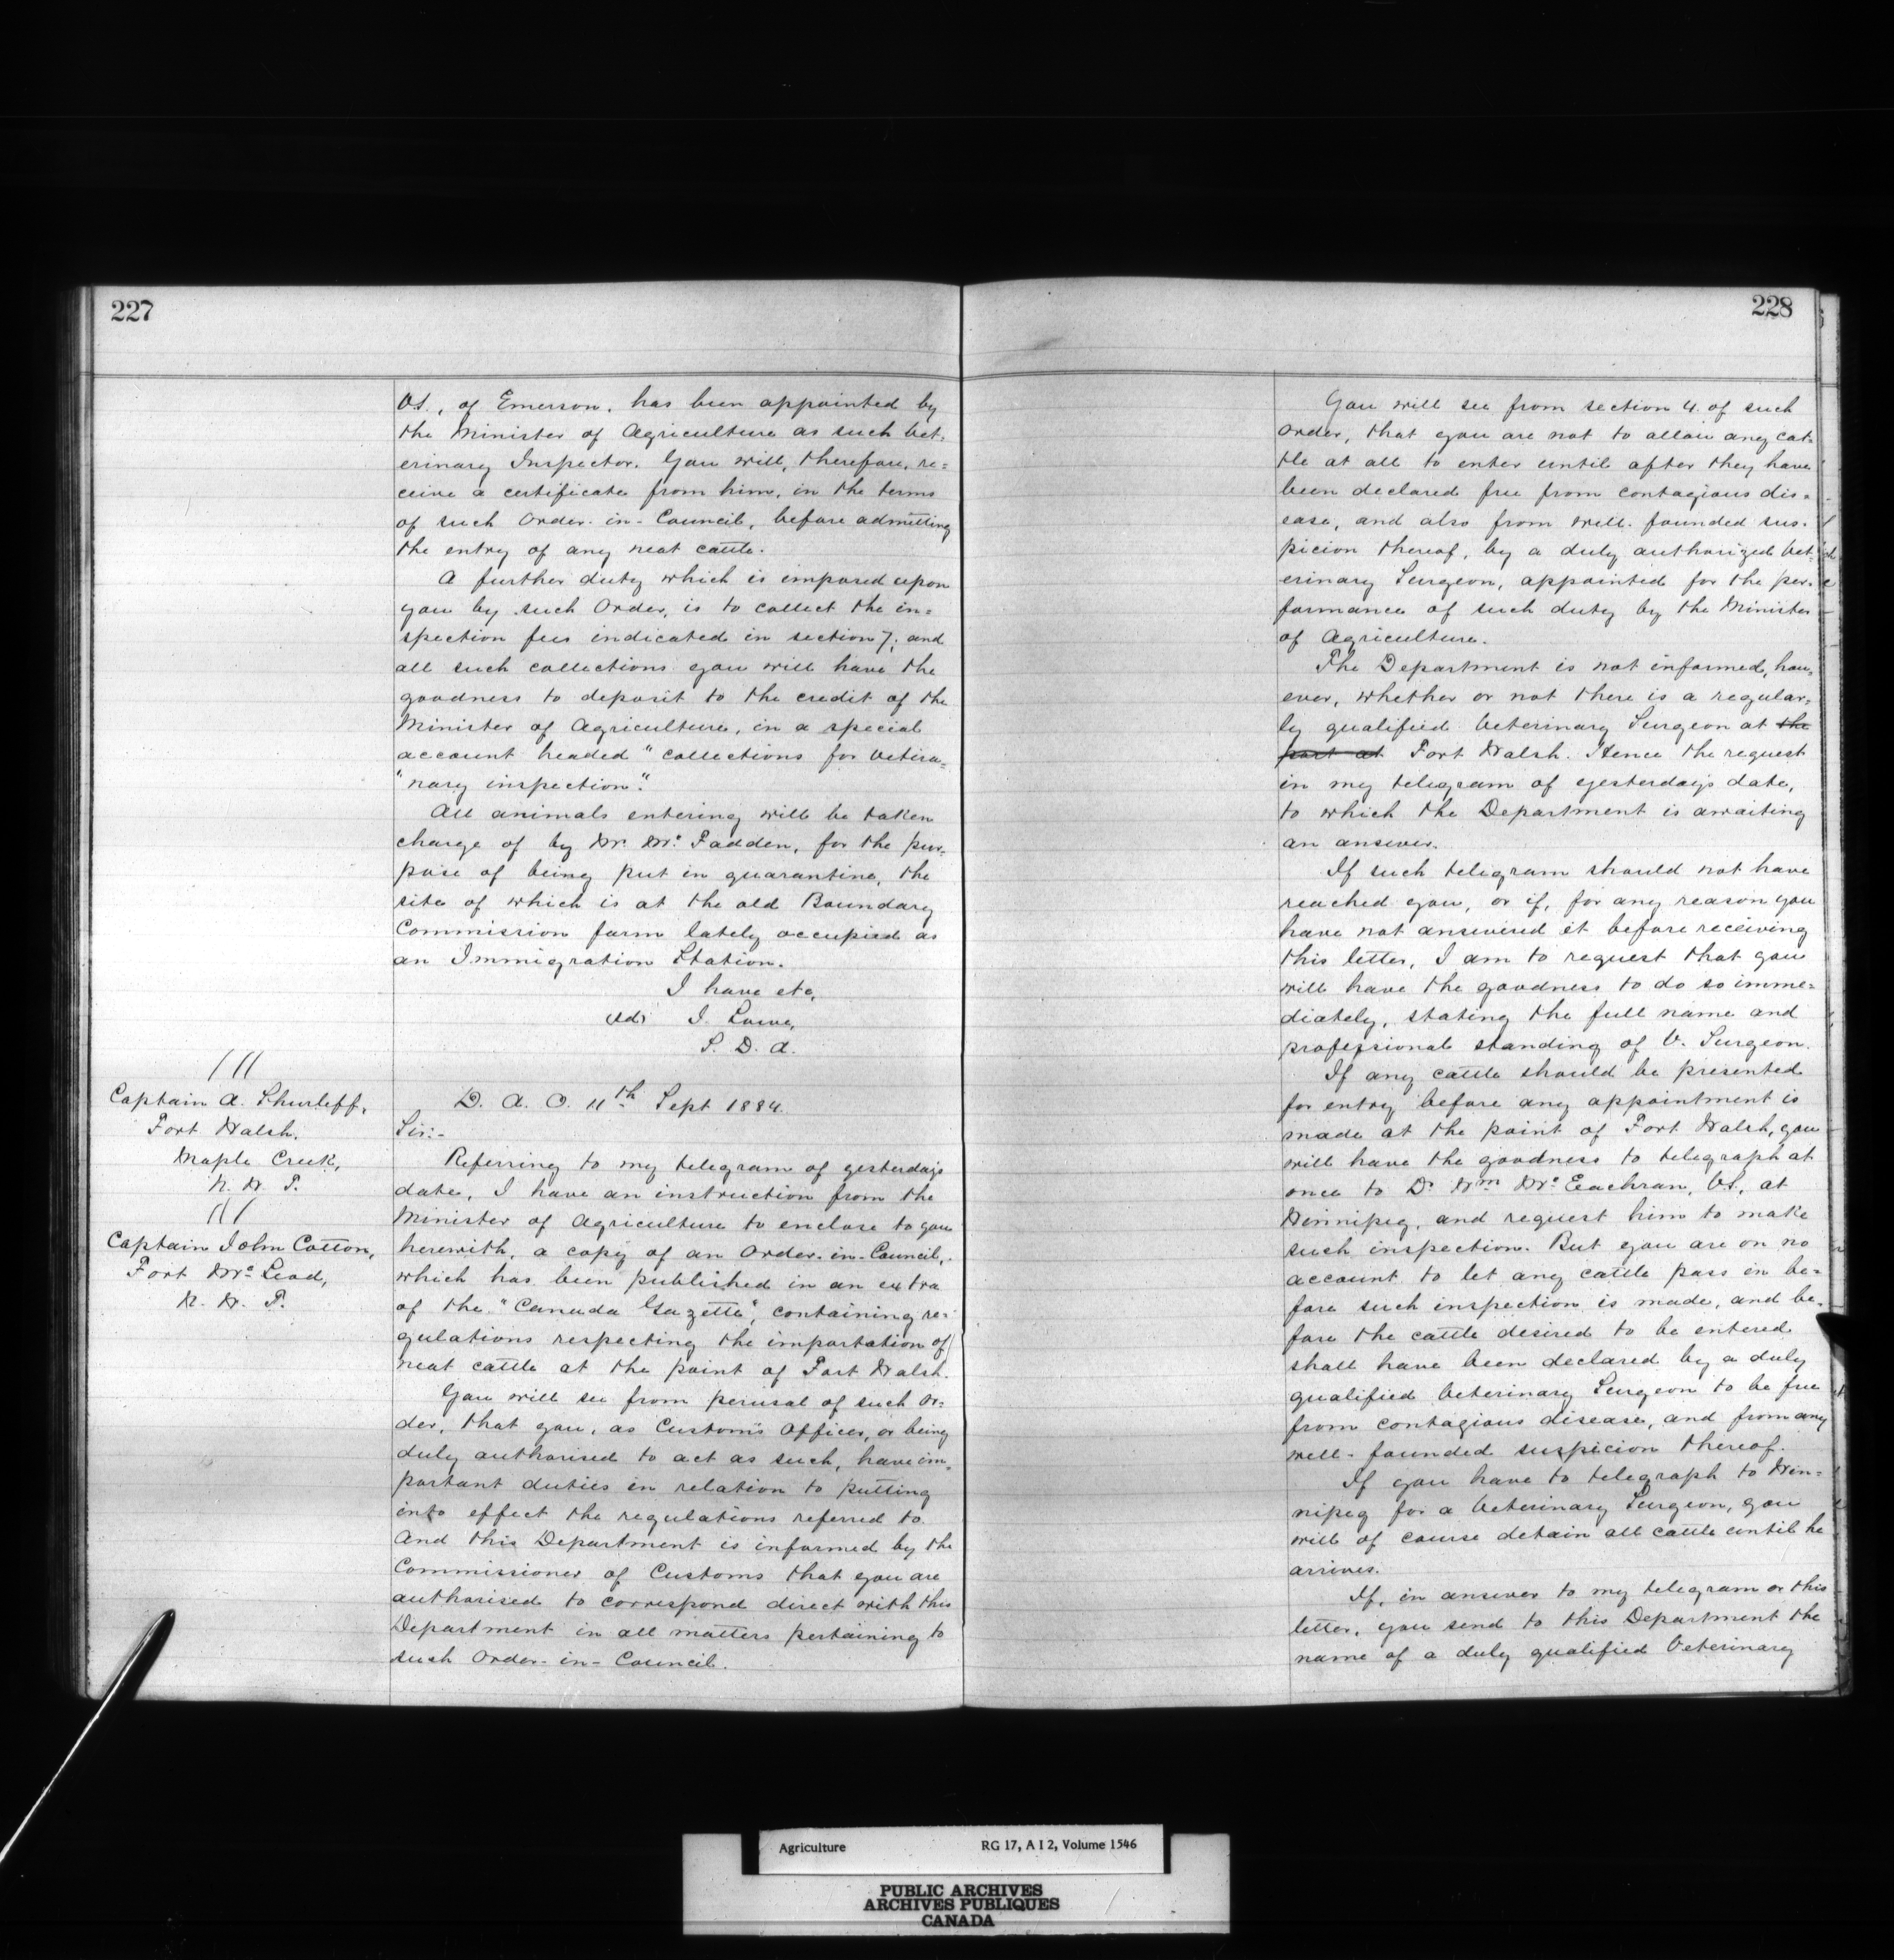 227
V.S., of Emerson, has been appointed by
the Minister of Agriculture as such Vet-
erinary Inspector. You will, therefore, re=
ceive a certificate from him, in the terms
of such Order-in-Council, before admitting
the entry of any neat cattle.
A further duty which is imposed upon
you by such Order, is to collect the in=
spection fees indicated in section 7; and
all such collections you will have the
goodness to deposit to the credit of the
Minister of Agriculture, in a special
account headed "collections for veteri=
"nary inspection."
All animals entering will be taken
charge of by Dr. Mc Fadden, for the pur-
pose of being put in quarantine, the
site of which is at the old Boundary
Commission farm lately occupied as
an Immigration Station.
I have etc,
(sd) J. Lowe,
S. D. A.
111
Captain A. Shurleff,
Fort Walsh.
Maple Creek,
N. W. T.
111
Captain John Cotton,
Fort Mc Leod,
N. W. T.
D. A. O. 11th Sept 1884.
Sir:-
Referring to my telegram of yesterday's
date, I have an instruction from the
Minister of Agriculture to enclose to you
herewith, a copy of an Order-in-Council,
which has been published in an extra
of the "Canada Gazette", containing re-
gulations respecting the importation of
neat cattle at the point of Fort Walsh.
You will see from perusal of such Or-
der, that you, as Customs Officer, or being
duly authorised to act as such, have im-
portant duties in relation to putting
into effect the regulations referred to.
And this Department is informed by the
Commissioner of Customs that you are
authorised to correspond direct with this
Department in all matters pertaining to
such Order-in-Council.
228
You will see from section 4 of such
order, that you are not to allow any cat-
tle at all to enter until after they have
been declared free from contagious dis-
ease, and also from well-founded sus-
picion thereof, by a duly authorized Vet-
erinary Surgeon, appointed for the per-
formance of such duty by the Minister
of Agriculture.
The Department is not informed, how-
ever, whether or not there is a regular-
ly qualified Veterinary Surgeon at the
port at Fort Walsh. Hence the request
in my telegram of yesterday's date,
to which the Department is awaiting
an answer.
If such telegram should not have
reached you, or if, for any reason you
have not answered it before receiving
this letter, I am to request that you
will have the goodness to do so imme=
diately, stating the full name and
professional standing of V. Surgeon.
If any cattle should be presented
for entry before any appointment is
made at the point of Fort Walsh, you
will have the goodness to telegraph at
once to Dr Wm Mc Eachran, V.S., at
Winnipeg, and request him to make
such inspection. But you are on no
account to let any cattle pass in be=
fore such inspection is made, and be-
fore the cattle desired to be entered
shall have been declared by a duly
qualified Veterinary Surgeon to be free
from contagious disease, and from any
well-founded suspicion thereof.
If you have to telegraph to Win=
nipeg for a Veterinary Surgeon, you
will of course detain all cattle until he
arrives.
If, in answer to my telegram or this
letter, you send to this Department the
name of a duly qualified Veterinary
Agriculture RG 17, A I 2, Volume 1546
PUBLIC ARCHIVES
ARCHIVES PUBLIQUES
CANADA